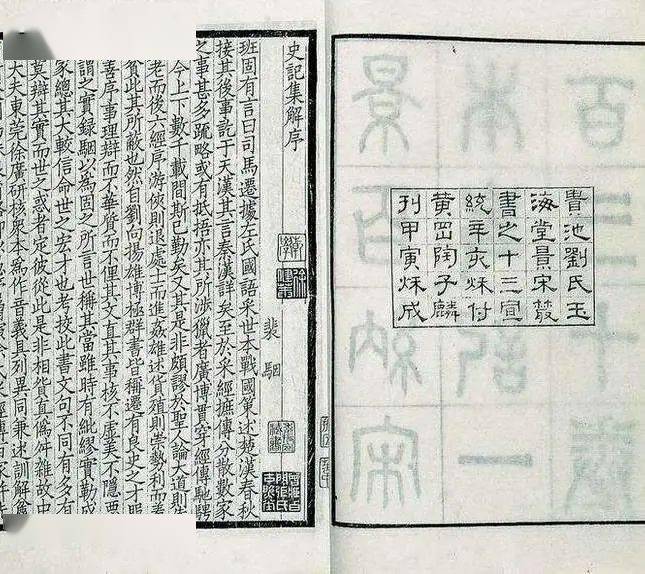 貴池劉氏玉
海堂景宋叢
書之十三宣
統辛亥秌付
黄岡陶子麟
刊甲寅秌成
景百衲宋
本史記一
百三十卷
史記集解序
裴駰
班固有言曰司馬遷據左氏國語采世本戰國策述楚漢春秋
接其後事訖于天漢其言秦漢詳矣至於采經摭傳分散數家
之事甚多踈略或有抵捂亦其所涉獵者廣博貫穿經傳馳騁
今上下數千載閒斯已勤矣又其是非頗謬於聖人論大道則
老而後六經序游俠則退處士而進姦雄述貨殖則崇勢利而羞
貧此其所敝也然自劉向揚雄博極羣書皆稱遷有良史之才服
善序事理辯而不華質而不俚其文直其事核不虛美不隱
謂之實録駰以爲固之所言世稱其當雖時有紕繆實勒成
家總其大較信命世之宏才也考挍此書文句不同有多有
莫辯其實而世之惑者定彼從此是非相貿真僞舛雜故中
大夫東莞徐廣研核衆本爲作音義具列異同兼述訓解